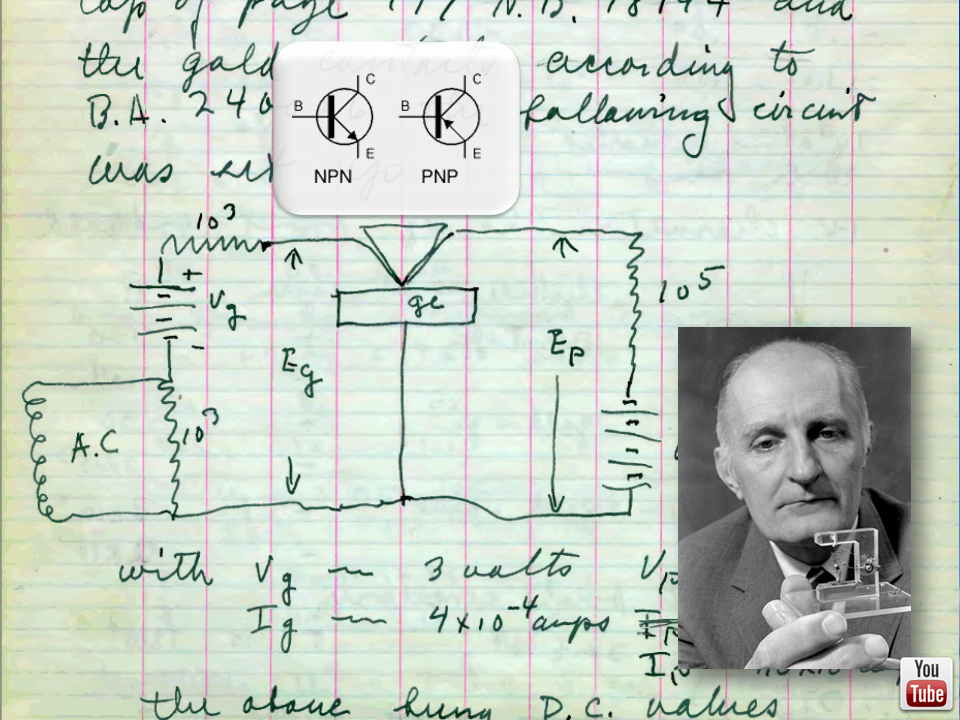 top of page 117 N.B. 18194 and
the gold contacts according to
B.A. 240 following circuit
was set up
C
B
E
NPN
C
B
E
PNP
10³
+
Vg
-
ge
10⁵
Eg
Ep
A.C
10³
with Vg — 3 volts V
Ig — 4x10⁻⁴ amps
I
the above being D.C. values
You
Tube